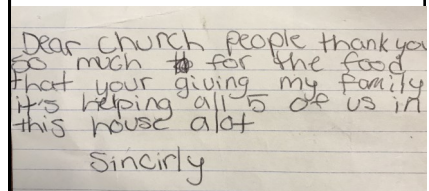 Dear church people thank you
so much for the food
that your giving my family
it's helping all 5 of us in
this house alot
Sincirly